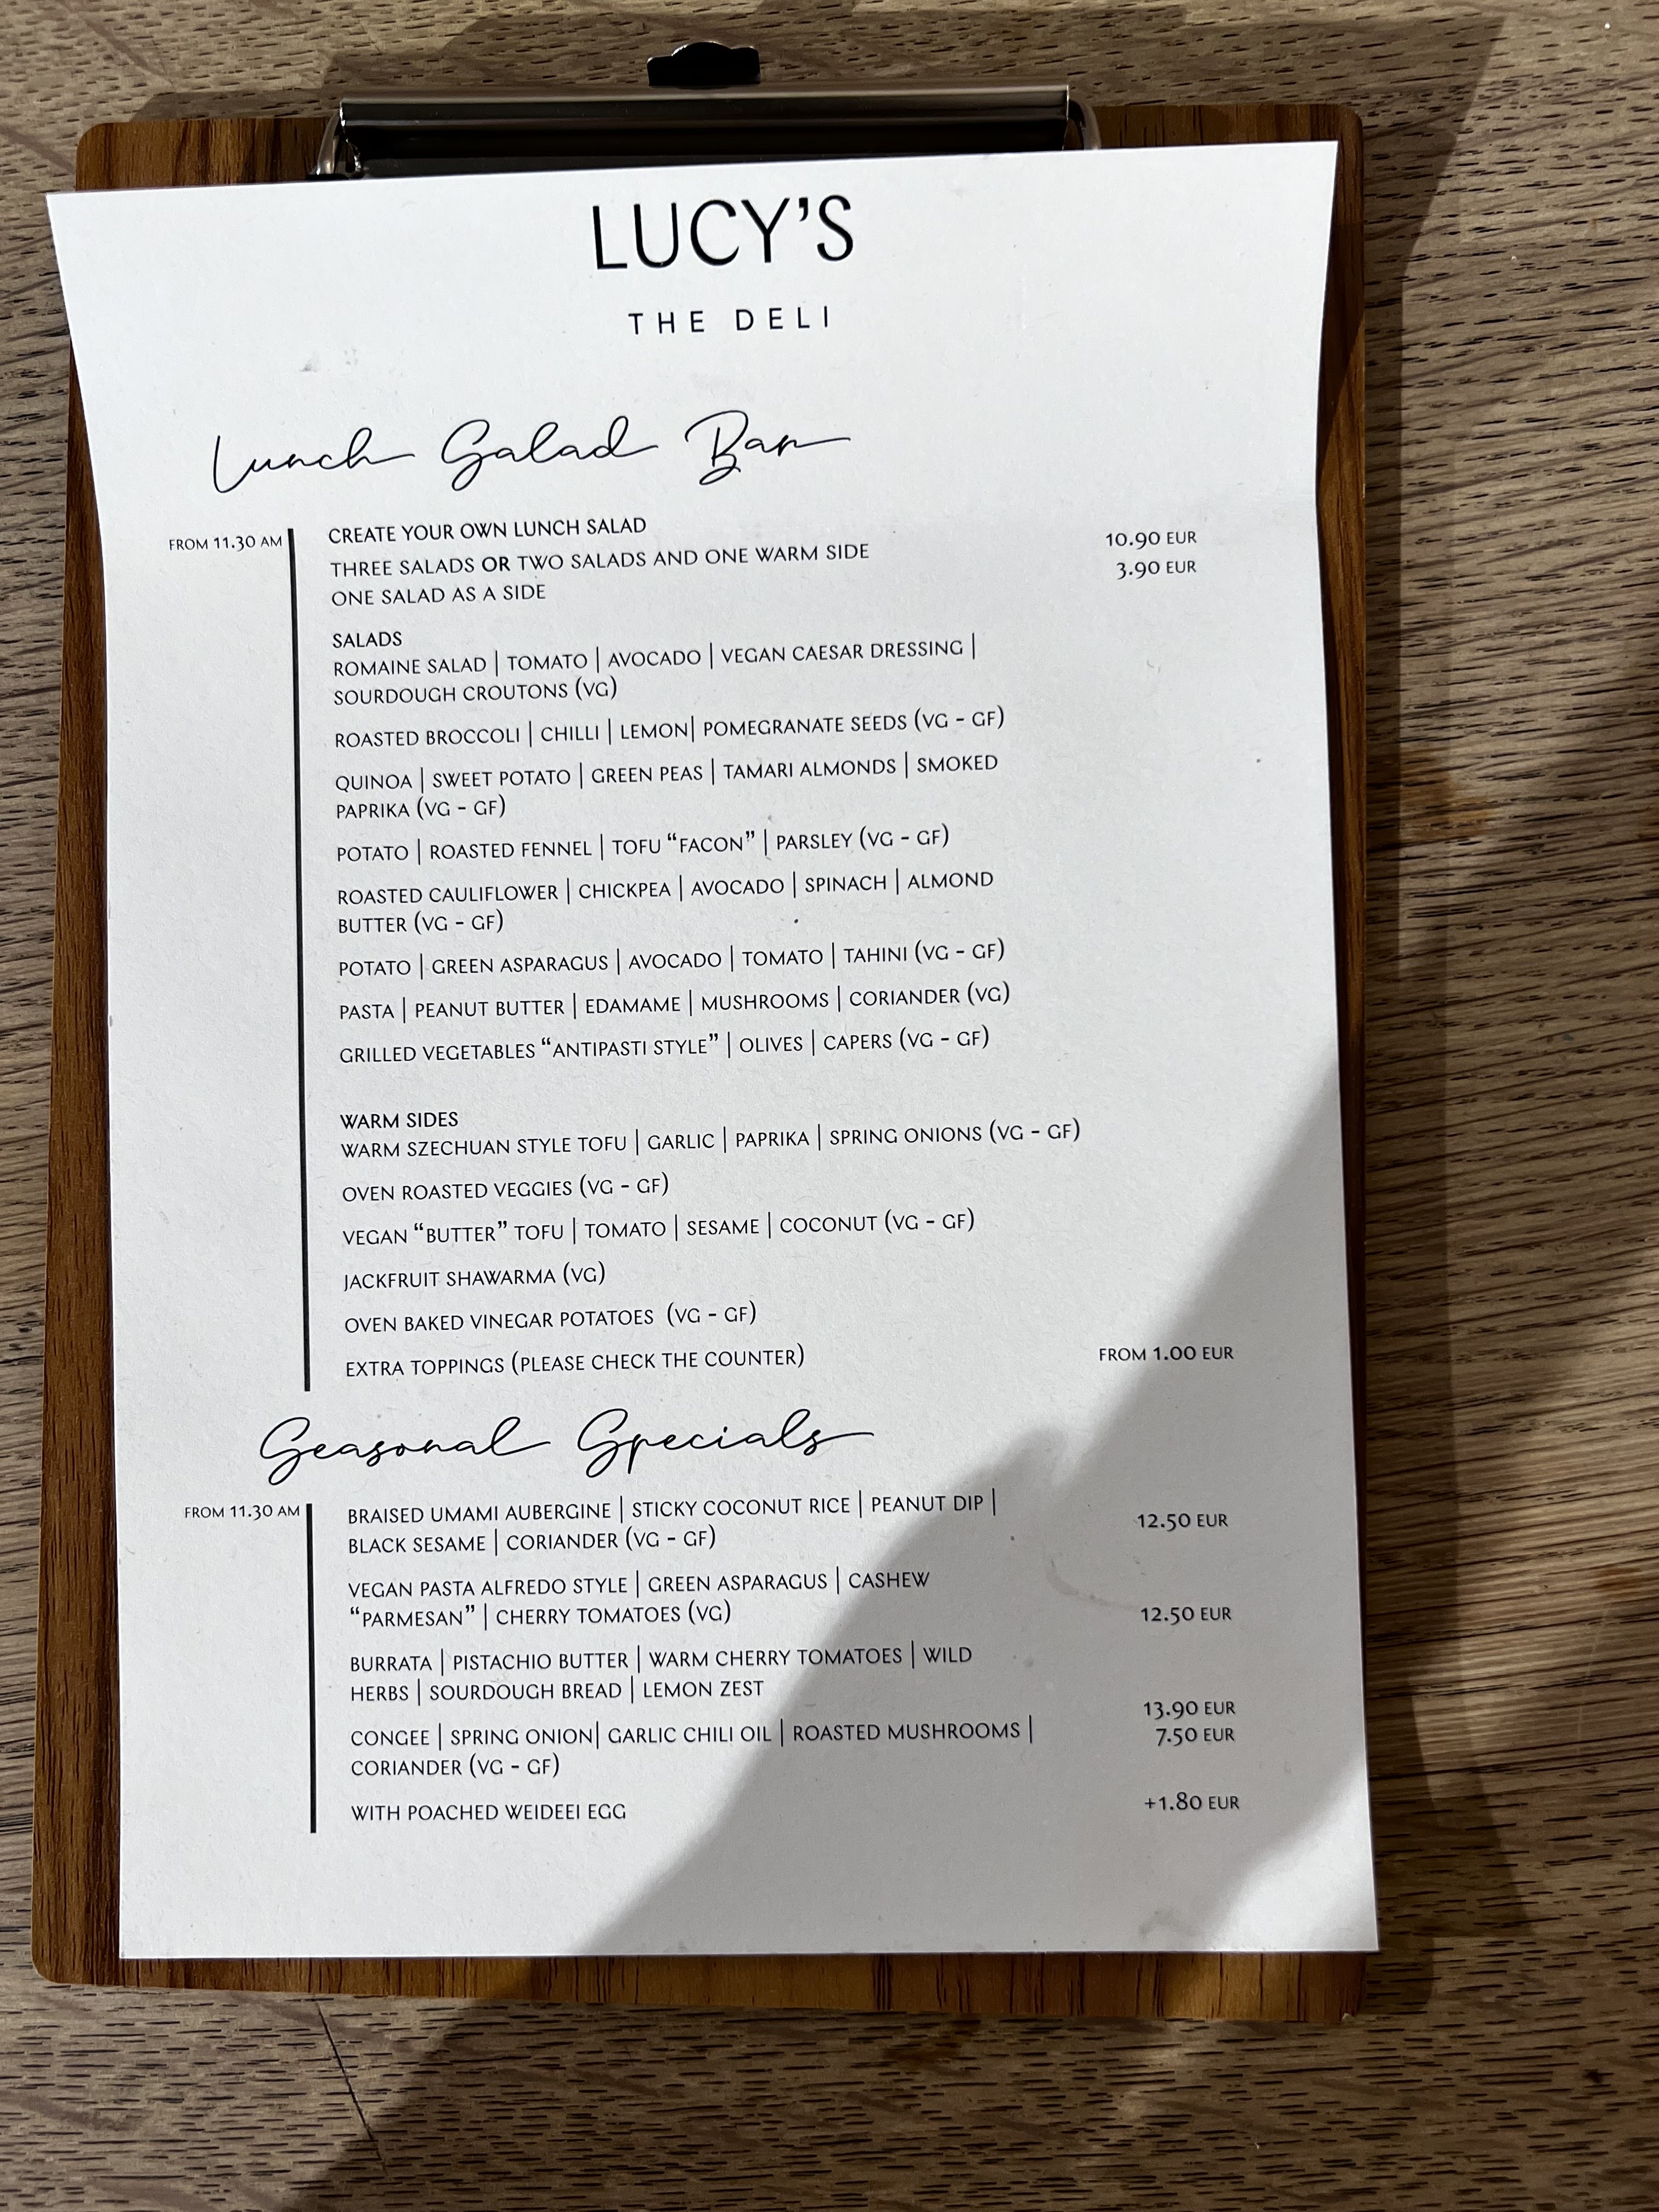 LUCY'S
THE DELI
Lunch Salad Bar
FROM 11.30 AM
CREATE YOUR OWN LUNCH SALAD
THREE SALADS OR TWO SALADS AND ONE WARM SIDE 10.90 EUR
ONE SALAD AS A SIDE 3.90 EUR
SALADS
ROMAINE SALAD | TOMATO | AVOCADO | VEGAN CAESAR DRESSING |
SOURDOUGH CROUTONS (VG)
ROASTED BROCCOLI | CHILLI | LEMON| POMEGRANATE SEEDS (VG - GF)
QUINOA | SWEET POTATO | GREEN PEAS | TAMARI ALMONDS | SMOKED
PAPRIKA (VG - GF)
POTATO | ROASTED FENNEL | TOFU “FACON” | PARSLEY (VG - GF)
ROASTED CAULIFLOWER | CHICKPEA | AVOCADO | SPINACH | ALMOND
BUTTER (VG - GF)
POTATO | GREEN ASPARAGUS | AVOCADO | TOMATO | TAHINI (VG - GF)
PASTA | PEANUT BUTTER | EDAMAME | MUSHROOMS | CORIANDER (VG)
GRILLED VEGETABLES “ANTIPASTI STYLE” | OLIVES | CAPERS (VG - GF)
WARM SIDES
WARM SZECHUAN STYLE TOFU | GARLIC | PAPRIKA | SPRING ONIONS (VG - GF)
OVEN ROASTED VEGGIES (VG - GF)
VEGAN “BUTTER” TOFU | TOMATO | SESAME | COCONUT (VG - GF)
JACKFRUIT SHAWARMA (VG)
OVEN BAKED VINEGAR POTATOES (VG - GF)
EXTRA TOPPINGS (PLEASE CHECK THE COUNTER) FROM 1.00 EUR
Seasonal Specials
FROM 11.30 AM
BRAISED UMAMI AUBERGINE | STICKY COCONUT RICE | PEANUT DIP |
BLACK SESAME | CORIANDER (VG - GF) 12.50 EUR
VEGAN PASTA ALFREDO STYLE | GREEN ASPARAGUS | CASHEW
“PARMESAN” | CHERRY TOMATOES (VG) 12.50 EUR
BURRATA | PISTACHIO BUTTER | WARM CHERRY TOMATOES | WILD
HERBS | SOURDOUGH BREAD | LEMON ZEST 13.90 EUR
CONGEE | SPRING ONION| GARLIC CHILI OIL | ROASTED MUSHROOMS | 7.50 EUR
CORIANDER (VG - GF)
WITH POACHED WEIDEEI EGG +1.80 EUR